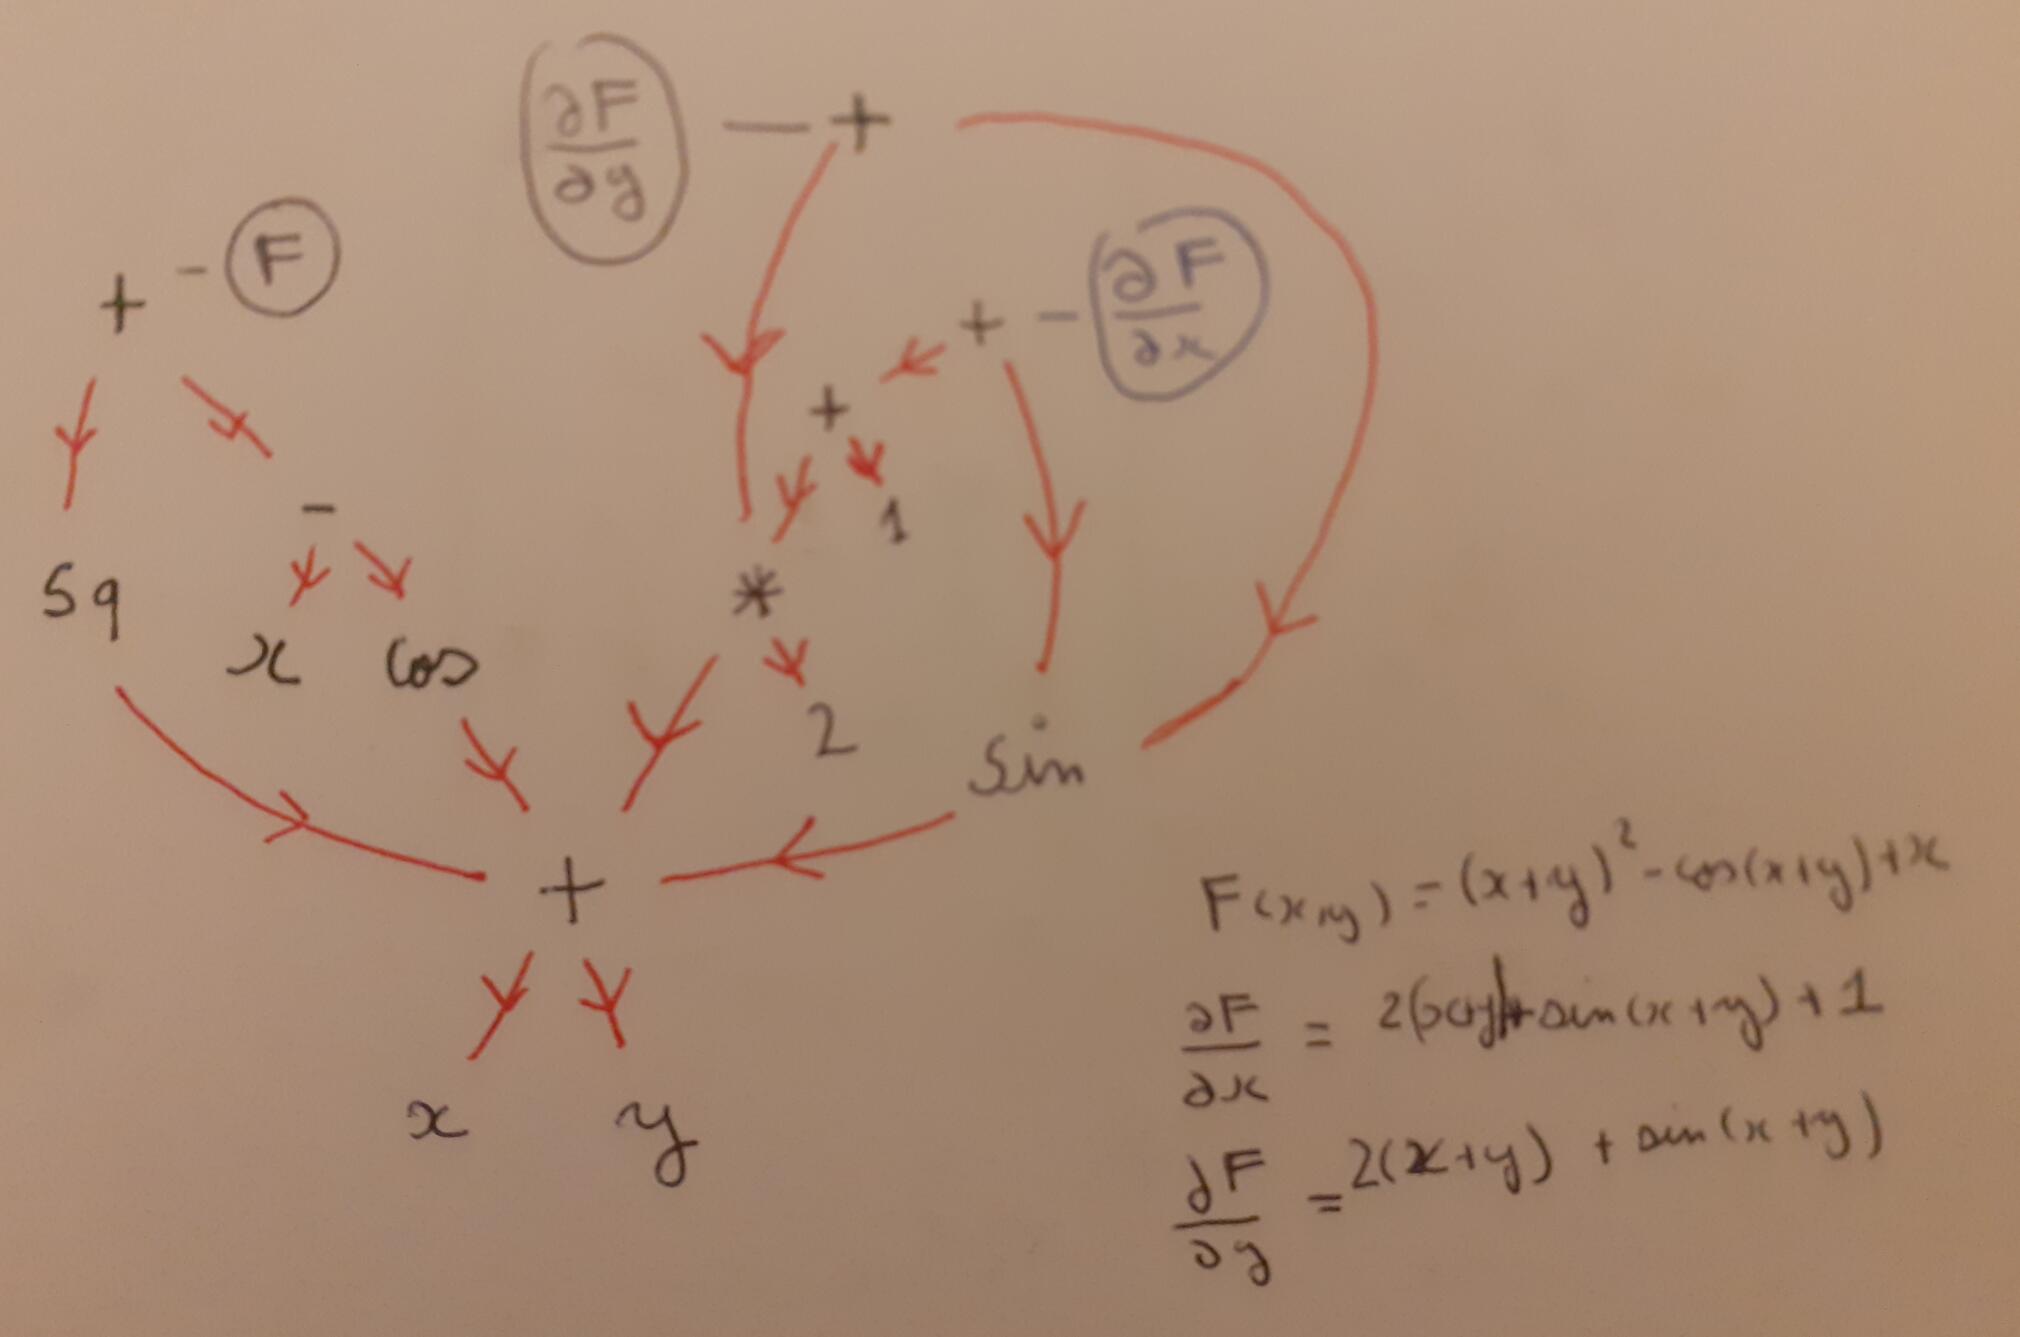 ∂F/∂y — +
+ - F
+ - ∂F/∂x
+
-
1
Sq
*
x cos
2
Sin
+
x y
F(x,y) = (x+y)² - cos(x+y) + x
∂F/∂x = 2(x+y) + sin(x+y) + 1
∂F/∂y = 2(x+y) + sin(x+y)